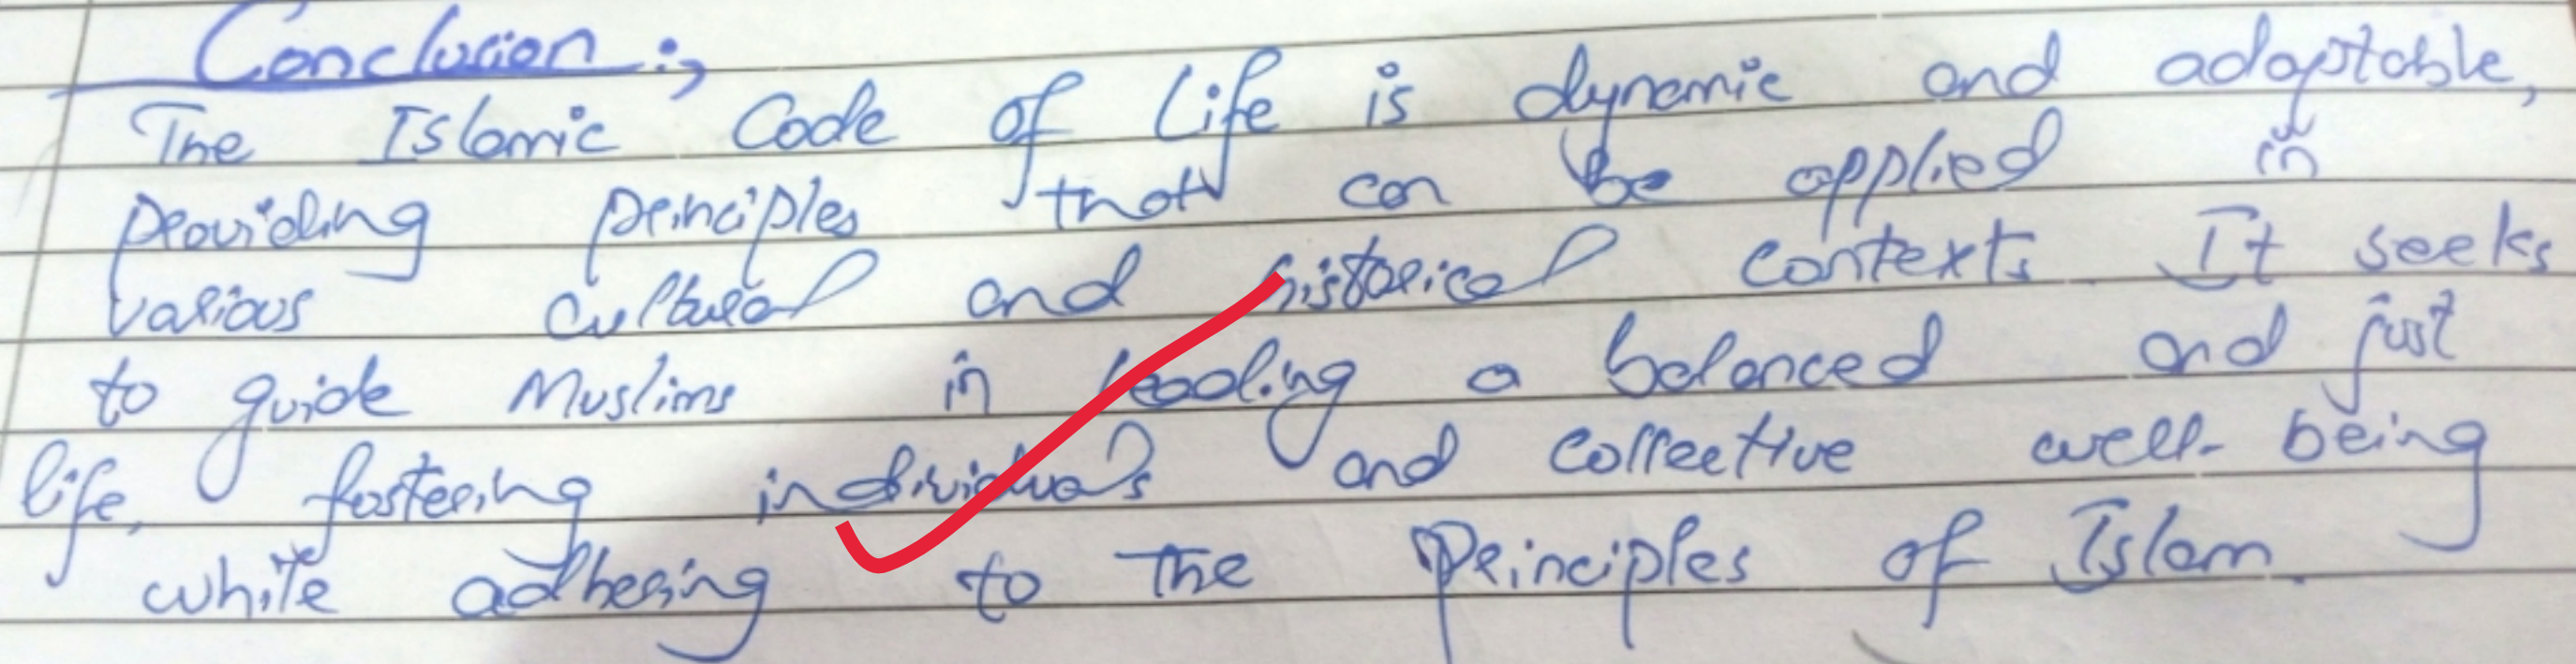 Conclusion :,
The Islamic Code of Life is dynamic and adaptable,
providing principles that can be applied in
various cultural and historical contexts. It seeks
to guide Muslims in leading a balanced and just
life, fostering individuals and collective well-being
while adhering to the Principles of Islam.